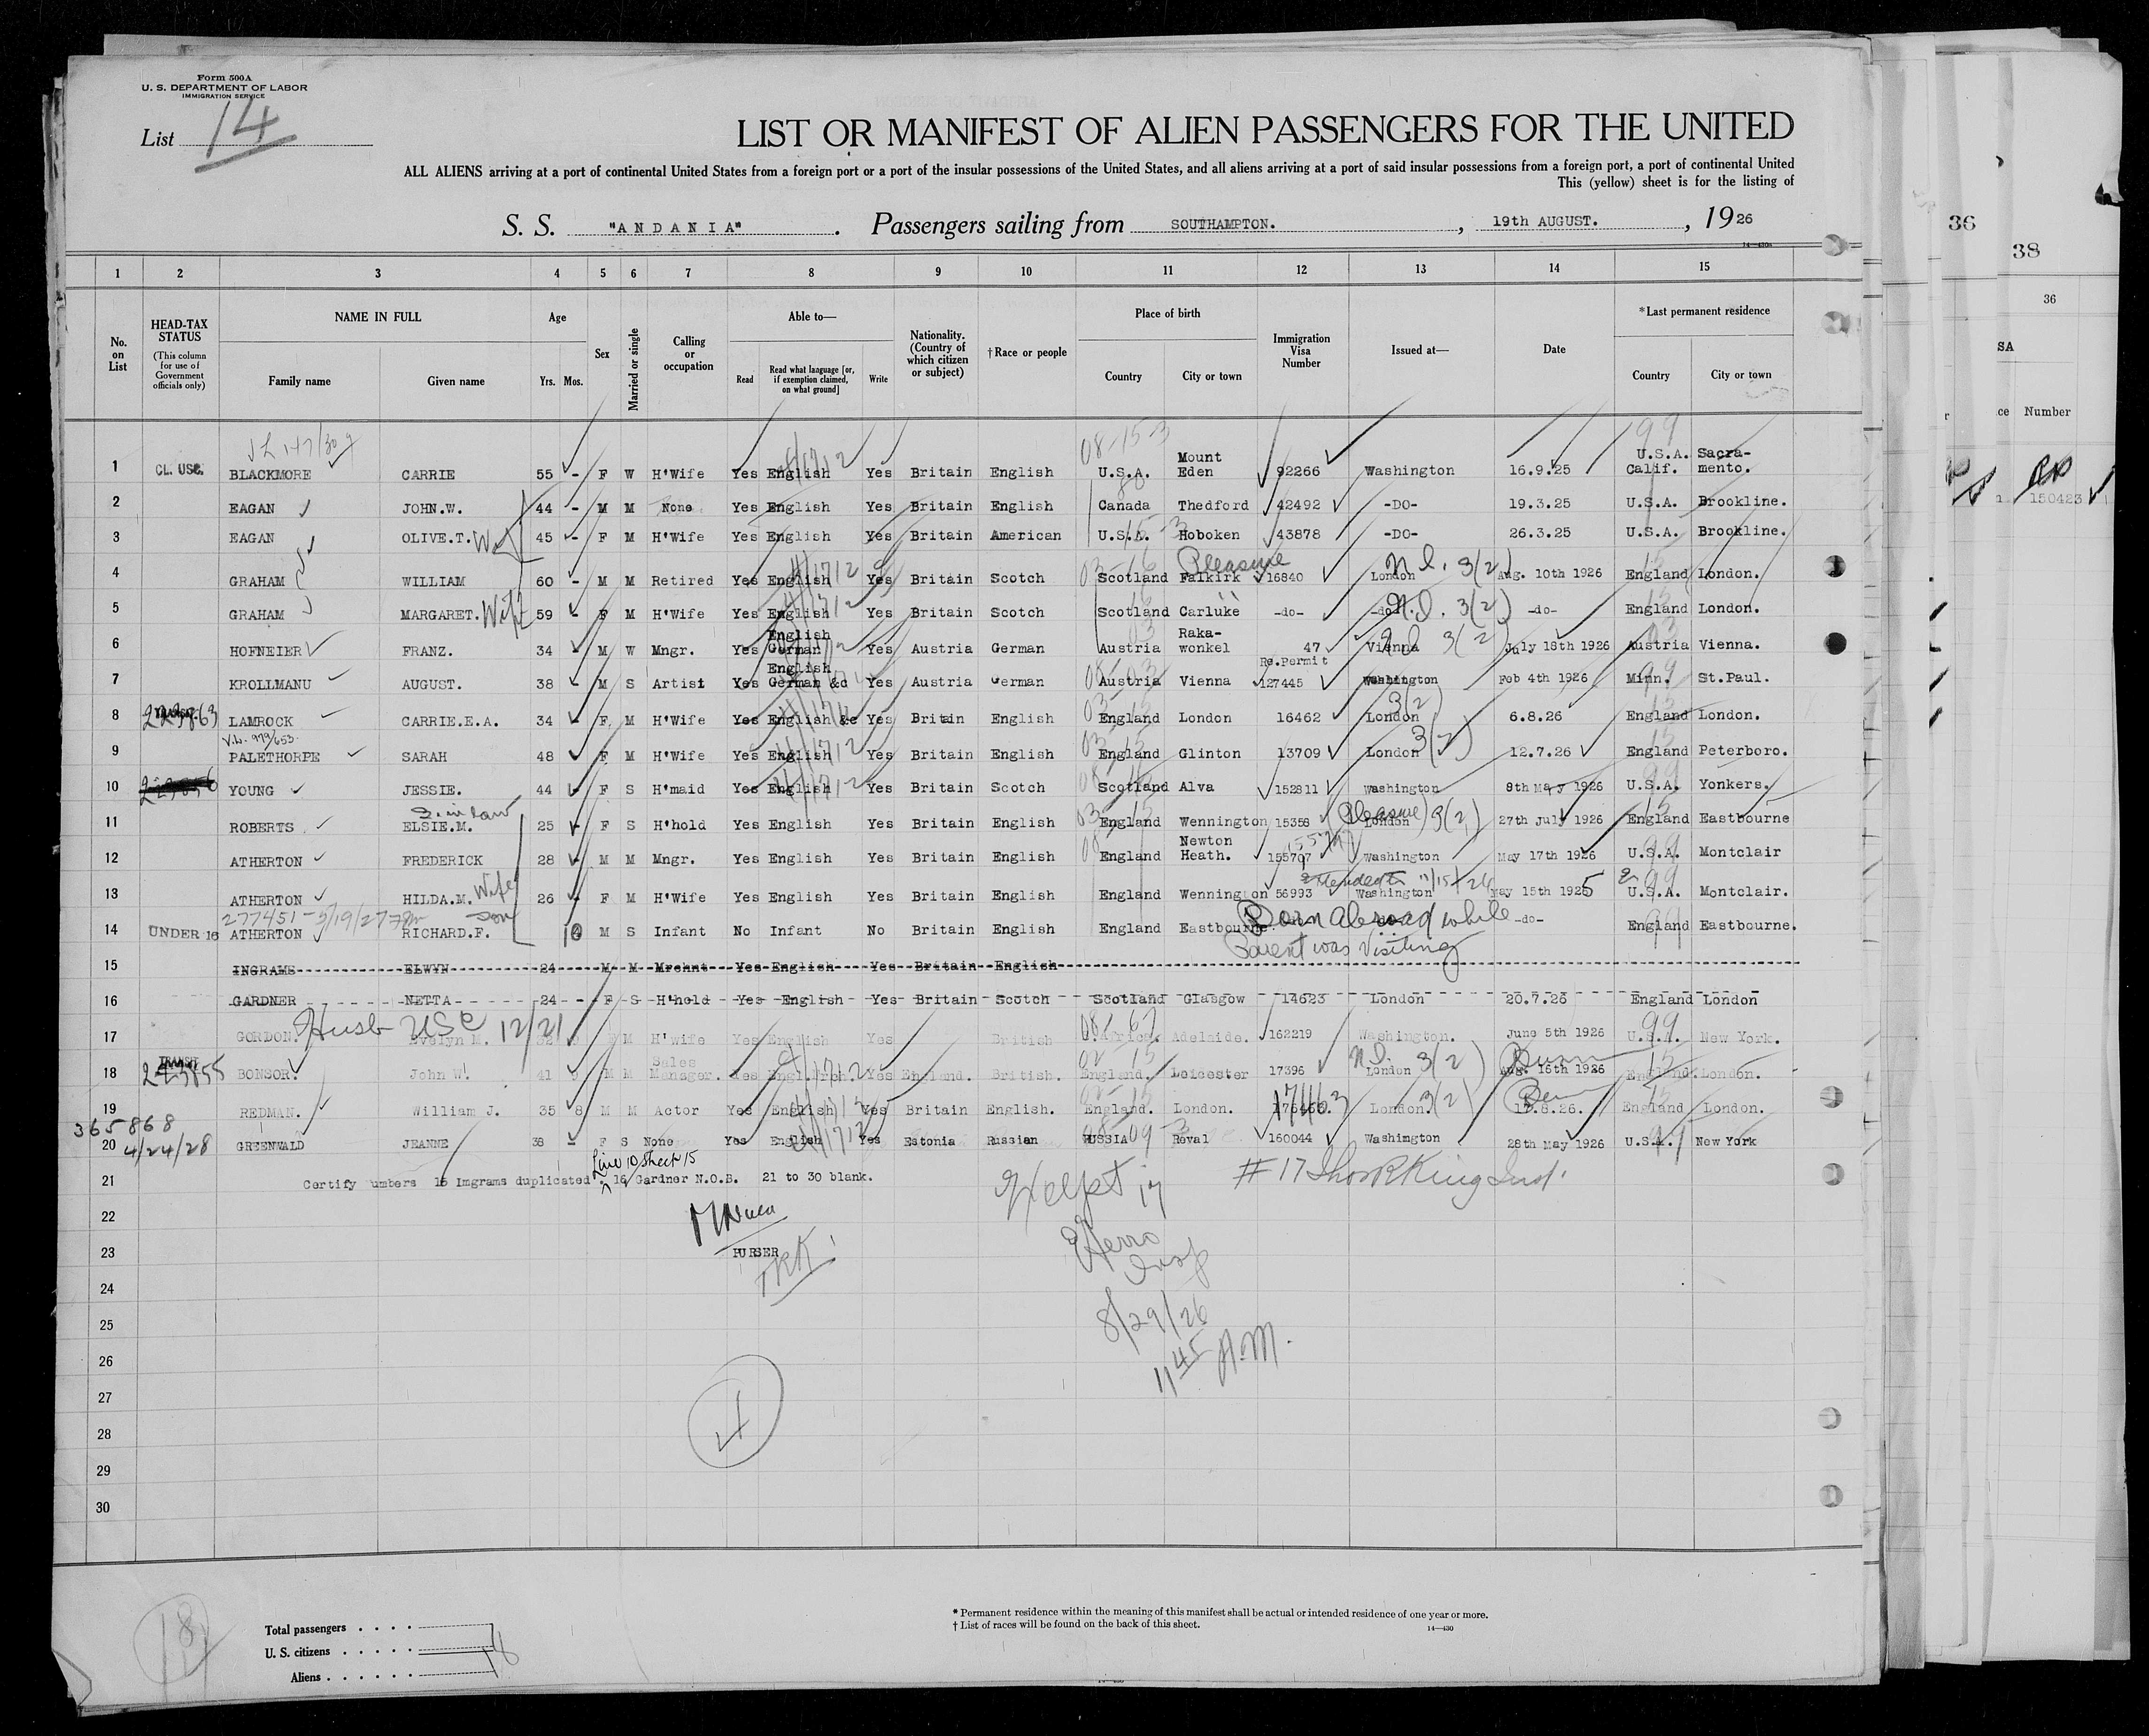 Form 500A
U. S. DEPARTMENT OF LABOR
IMMIGRATION SERVICE
List 14
LIST OR MANIFEST OF ALIEN PASSENGERS FOR THE UNITED
ALL ALIENS arriving at a port of continental United States from a foreign port or a port of the insular possessions of the United States, and all aliens arriving at a port of said insular possessions from a foreign port, a port of continental United
This (yellow) sheet is for the listing of
S. S. "ANDANIA". Passengers sailing from SOUTHAMPTON. , 19th AUGUST. , 1926
36
38
1 2 3 4 5 6 7 8 9 10 11 12 13 14 15
36
No. on List
HEAD-TAX STATUS
(This column for use of Government officials only)
NAME IN FULL
Family name Given name
Age
Yrs. Mos.
Sex
Married or single
Calling or occupation
Able to—
Read
Read what language [or, if exemption claimed, on what ground]
Write
Nationality. (Country of which citizen or subject)
†Race or people
Place of birth
Country City or town
Immigration Visa Number
Issued at—
Date
*Last permanent residence
Country City or town
SA
ce Number
1 CL. USC. BLACKMORE CARRIE 55 - F W H'Wife Yes English Yes Britain English U.S.A. Mount Eden 92266 Washington 16.9.25 U.S.A. Calif. Sacra-mento.
150423
2 EAGAN JOHN.W. 44 - M M None Yes English Yes Britain English Canada Thedford 42492 -DO- 19.3.25 U.S.A. Brookline.
3 EAGAN OLIVE.T. 45 - F M H'Wife Yes English Yes Britain American U.S.A. Hoboken 43878 -DO- 26.3.25 U.S.A. Brookline.
Pleasure
4 GRAHAM WILLIAM 60 - M M Retired Yes English Yes Britain Scotch Scotland Falkirk 16840 London 3(2) Aug. 10th 1926 England London.
5 GRAHAM MARGARET. Wife 59 - F M H'Wife Yes English Yes Britain Scotch Scotland Carluke -do- -do- 3(2) -do- England London.
6 HOFNEIER FRANZ. 34 - M W Mngr. Yes English German Yes Austria German Austria Raka-wonkel 47 Vienna 3(2) July 18th 1926 Austria Vienna.
7 KROLLMANU AUGUST. 38 - M S Artist Yes English German &c Yes Austria German Austria Vienna Re.Permit 127445 Washington Feb 4th 1926 Minn. St.Paul.
8 TRANSIT. 223863 LAMROCK CARRIE.E.A. 34 - F M H'Wife Yes English &c Yes Britain English England London 16462 London 3(2) 6.8.26 England London.
9 PALETHORPE SARAH 48 F M H'Wife Yes English Yes Britain English England Glinton 13709 London 3(2) 12.7.26 England Peterboro.
10 YOUNG JESSIE. 44 - F S H'maid Yes English Yes Britain Scotch Scotland Alva 152811 Washington 8th May 1926 U.S.A. Yonkers.
11 ROBERTS ELSIE.M. 25 - F S H'hold Yes English Yes Britain English England Wennington 15358 London (Pleasure) 3(2) 27th July 1926 England Eastbourne
12 ATHERTON FREDERICK 28 - M M Mngr. Yes English Yes Britain English England Newton Heath. 155707 Washington May 17th 1926 U.S.A. Montclair
13 ATHERTON HILDA.M. Wife 26 - F M H'Wife Yes English Yes Britain English England Wennington 56993 Washington May 15th 1925 U.S.A. Montclair.
277451 - 9/19/27
14 UNDER 16 ATHERTON RICHARD.F. son 10 M S Infant No Infant No Britain English England Eastbourne. Born abroad while -do- England Eastbourne.
Parent was visiting
15 INGRAMS ELWYN 24 M M Mrchnt Yes English Yes Britain English
16 GARDNER NETTA 24 - F S H'hold Yes English Yes Britain Scotch Scotland Glasgow 14623 London 20.7.26 England London
17 GORDON. Husb USC 12/21 Evelyn M. 32 F M H'wife Yes English Yes British S.Africa. Adelaide. 162219 Washington. June 5th 1926 U.S.A. New York.
18 TRANSIT 223855 BONSOR. John W. 41 9 M M Sales Manager. Yes Engl. Yes England. British. England. Leicester 17396 London 3(2) Aug. 16th 1926 England. London.
19 REDMAN. William J. 35 8 M M Actor Yes English Yes Britain English. England. London. 17463 London. 3(2) 17.8.26. England London.
365868
20 4/24/28 GREENWALD JEANNE 38 - F S None Yes English Yes Estonia Russian RUSSIA Reval 160044 Washington 28th May 1926 U.S.A. New York
Line 10 sheet 15
21 Certify umbers 15 Imgrams duplicated 16 Gardner N.O.B. 21 to 30 blank.
22
23 PURSER
24
25 8/29/26
26 11 45 A.M.
27
28
29
30
Total passengers . . . .
U. S. citizens . . . . .
Aliens . . . . . . 18
* Permanent residence within the meaning of this manifest shall be actual or intended residence of one year or more.
† List of races will be found on the back of this sheet.
14—430